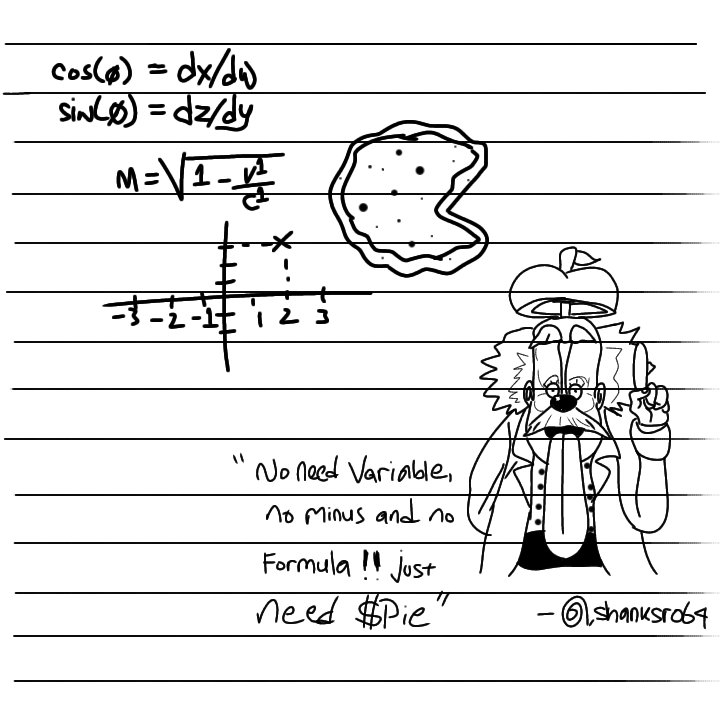 cos(ø) = dx/dw
sin(ø) = dz/dy
M = √1 - v¹/c¹
-3 -2 -1 1 2 3
"No need Variable,
no minus and no
Formula !! just
need $Pie"
- @_shanksro64